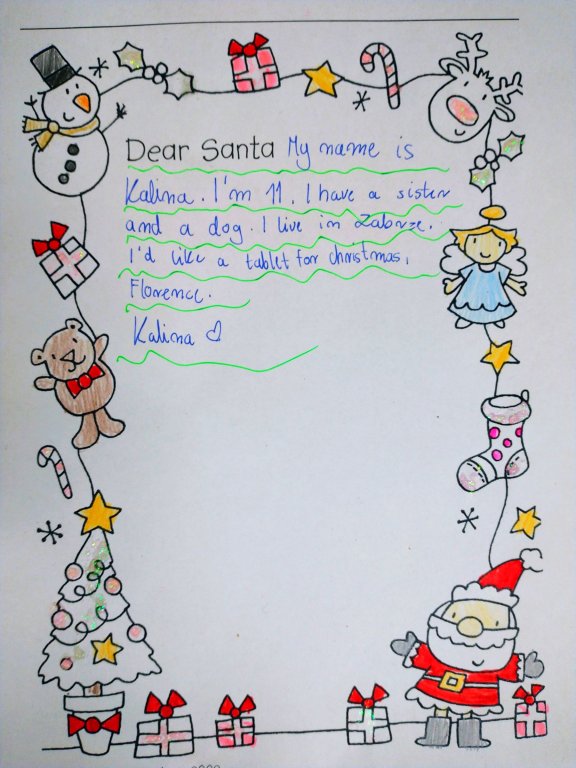 Dear Santa My name is
Kalina. I'm 11. I have a sister
and a dog. I live in Zaborze.
I'd like a tablet for christmas,
Florence.
Kalina ♡